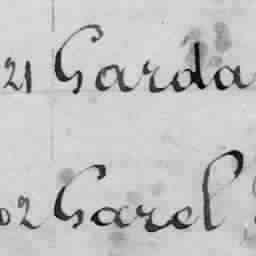 21 Garda
02 Garel